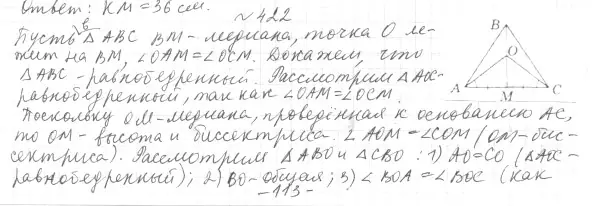 Ответ: KM = 36 см.
№ 422
Пусть в △ ABC BM - медиана, точка O ле-
жит на BM, ∠OAM = ∠OCM. Докажем, что
△ABC - равнобедренный. Рассмотрим △AOC-
равнобедренный, так как ∠OAM = ∠OCM.
Поскольку OM - медиана, проведённая к основанию AC,
то OM - высота и биссектриса. ∠AOM = ∠COM (OM - бис-
сектриса). Рассмотрим △ABO и △CBO : 1) AO = CO (△AOC-
равнобедренный); 2) BO - общая; 3) ∠BOA = ∠BOC (как
-113-
B
O
A
M
C